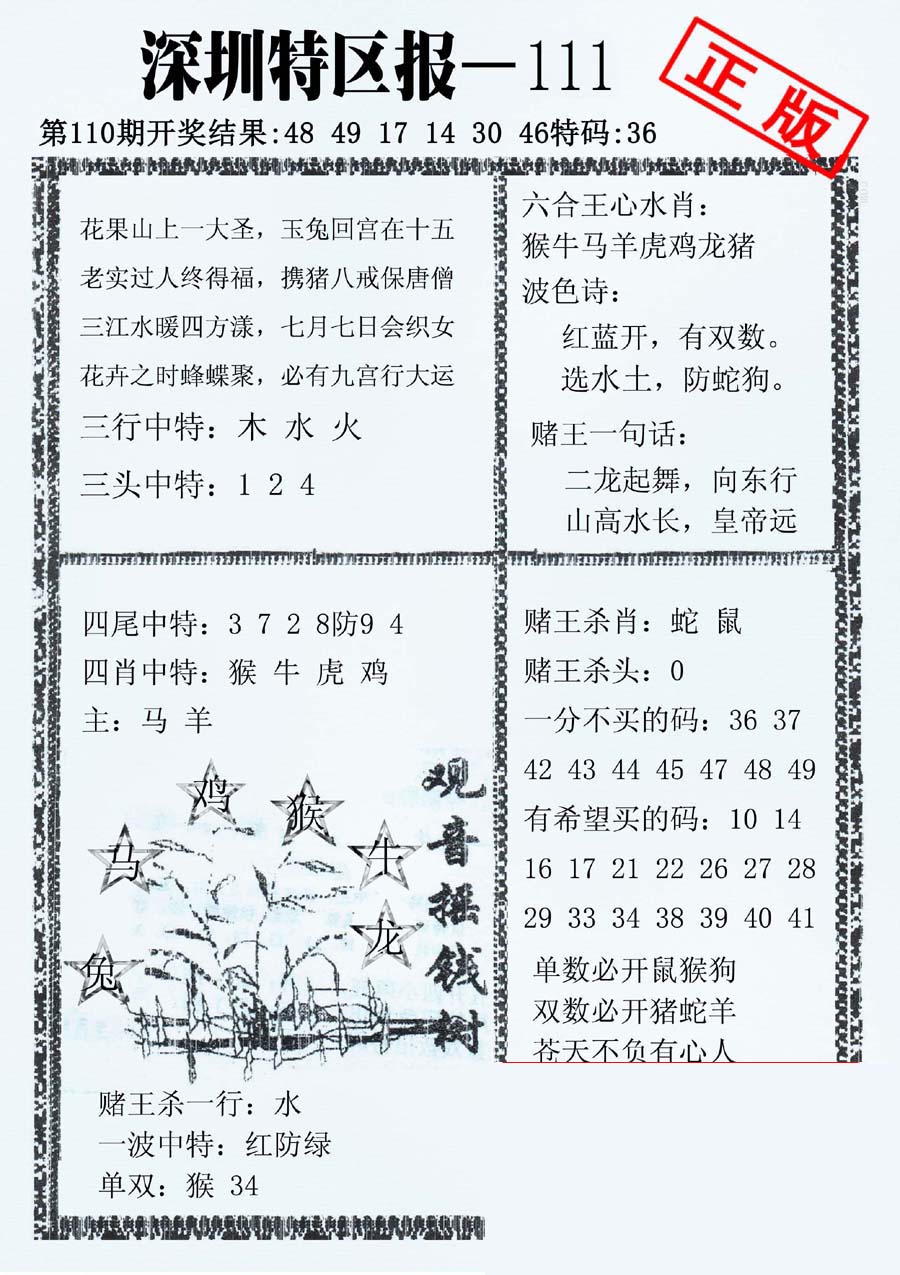 深圳特区报—111
正版
第110期开奖结果:48 49 17 14 30 46特码:36
花果山上一大圣，玉兔回宫在十五
老实过人终得福，携猪八戒保唐僧
三江水暖四方漾，七月七日会织女
花卉之时蜂蝶聚，必有九宫行大运
三行中特：木 水 火
三头中特：1 2 4
六合王心水肖：
猴牛马羊虎鸡龙猪
波色诗：
红蓝开，有双数。
选水土，防蛇狗。
赌王一句话：
二龙起舞，向东行
山高水长，皇帝远
四尾中特：3 7 2 8防9 4
四肖中特：猴 牛 虎 鸡
主：马 羊
鸡
猴
马
牛
龙
兔
观音摇钱树
赌王杀一行：水
一波中特：红防绿
单双：猴 34
赌王杀肖：蛇 鼠
赌王杀头：0
一分不买的码：36 37
42 43 44 45 47 48 49
有希望买的码：10 14
16 17 21 22 26 27 28
29 33 34 38 39 40 41
单数必开鼠猴狗
双数必开猪蛇羊
苍天不负有心人